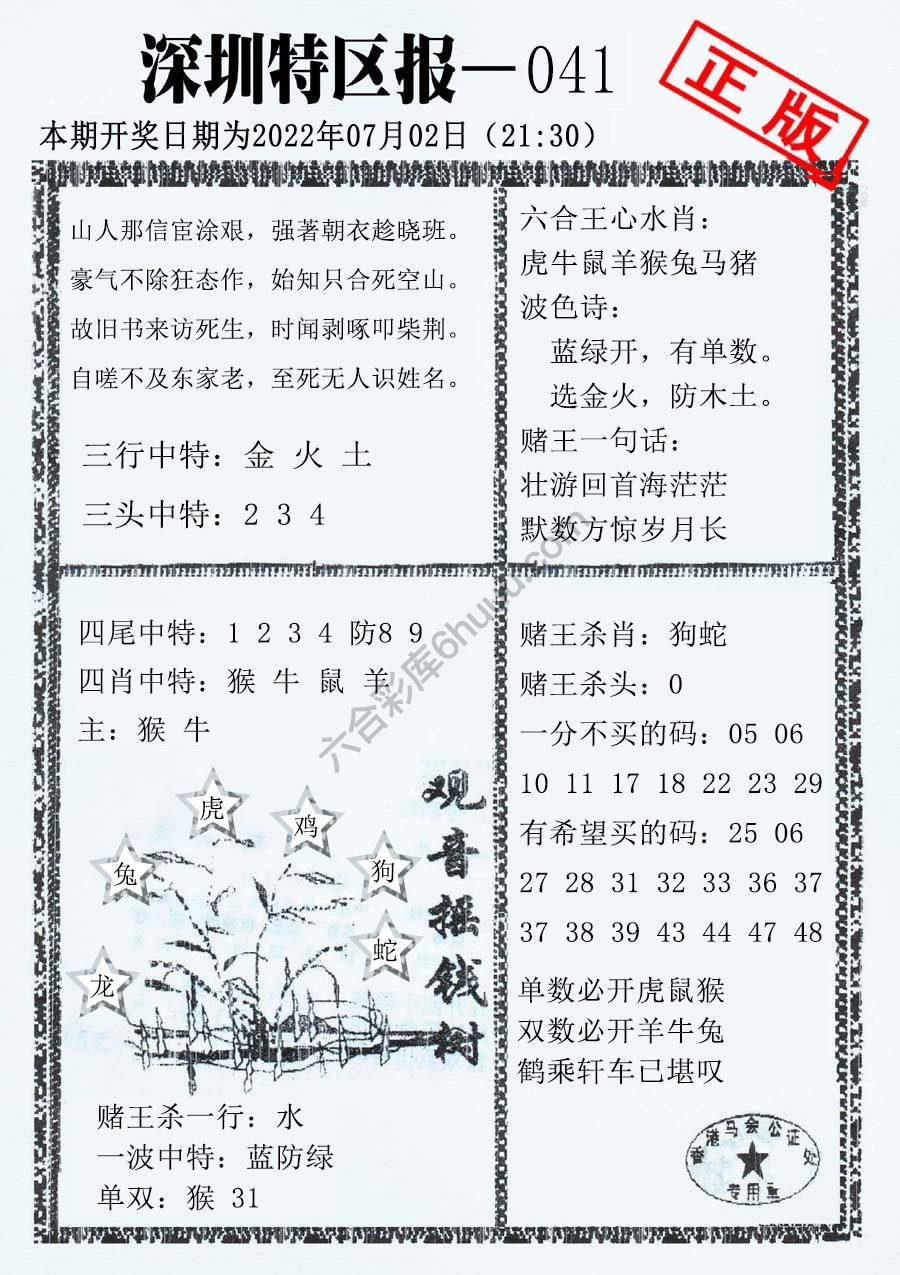 深圳特区报—041
正版
本期开奖日期为2022年07月02日（21:30）
山人那信宦涂艰，强著朝衣趁晓班。
豪气不除狂态作，始知只合死空山。
故旧书来访死生，时闻剥啄叩柴荆。
自嗟不及东家老，至死无人识姓名。
三行中特：金 火 土
三头中特：2 3 4
六合王心水肖：
虎牛鼠羊猴兔马猪
波色诗：
蓝绿开，有单数。
选金火，防木土。
赌王一句话：
壮游回首海茫茫
默数方惊岁月长
四尾中特：1 2 3 4 防8 9
四肖中特：猴 牛 鼠 羊
主：猴 牛
虎
鸡
兔
狗
蛇
龙
观音摇钱树
赌王杀一行：水
一波中特：蓝防绿
单双：猴 31
赌王杀肖：狗蛇
赌王杀头：0
一分不买的码：05 06
10 11 17 18 22 23 29
有希望买的码：25 06
27 28 31 32 33 36 37
37 38 39 43 44 47 48
单数必开虎鼠猴
双数必开羊牛兔
鹤乘轩车已堪叹
香港马会公证处
专用章
六合彩库6huu.com